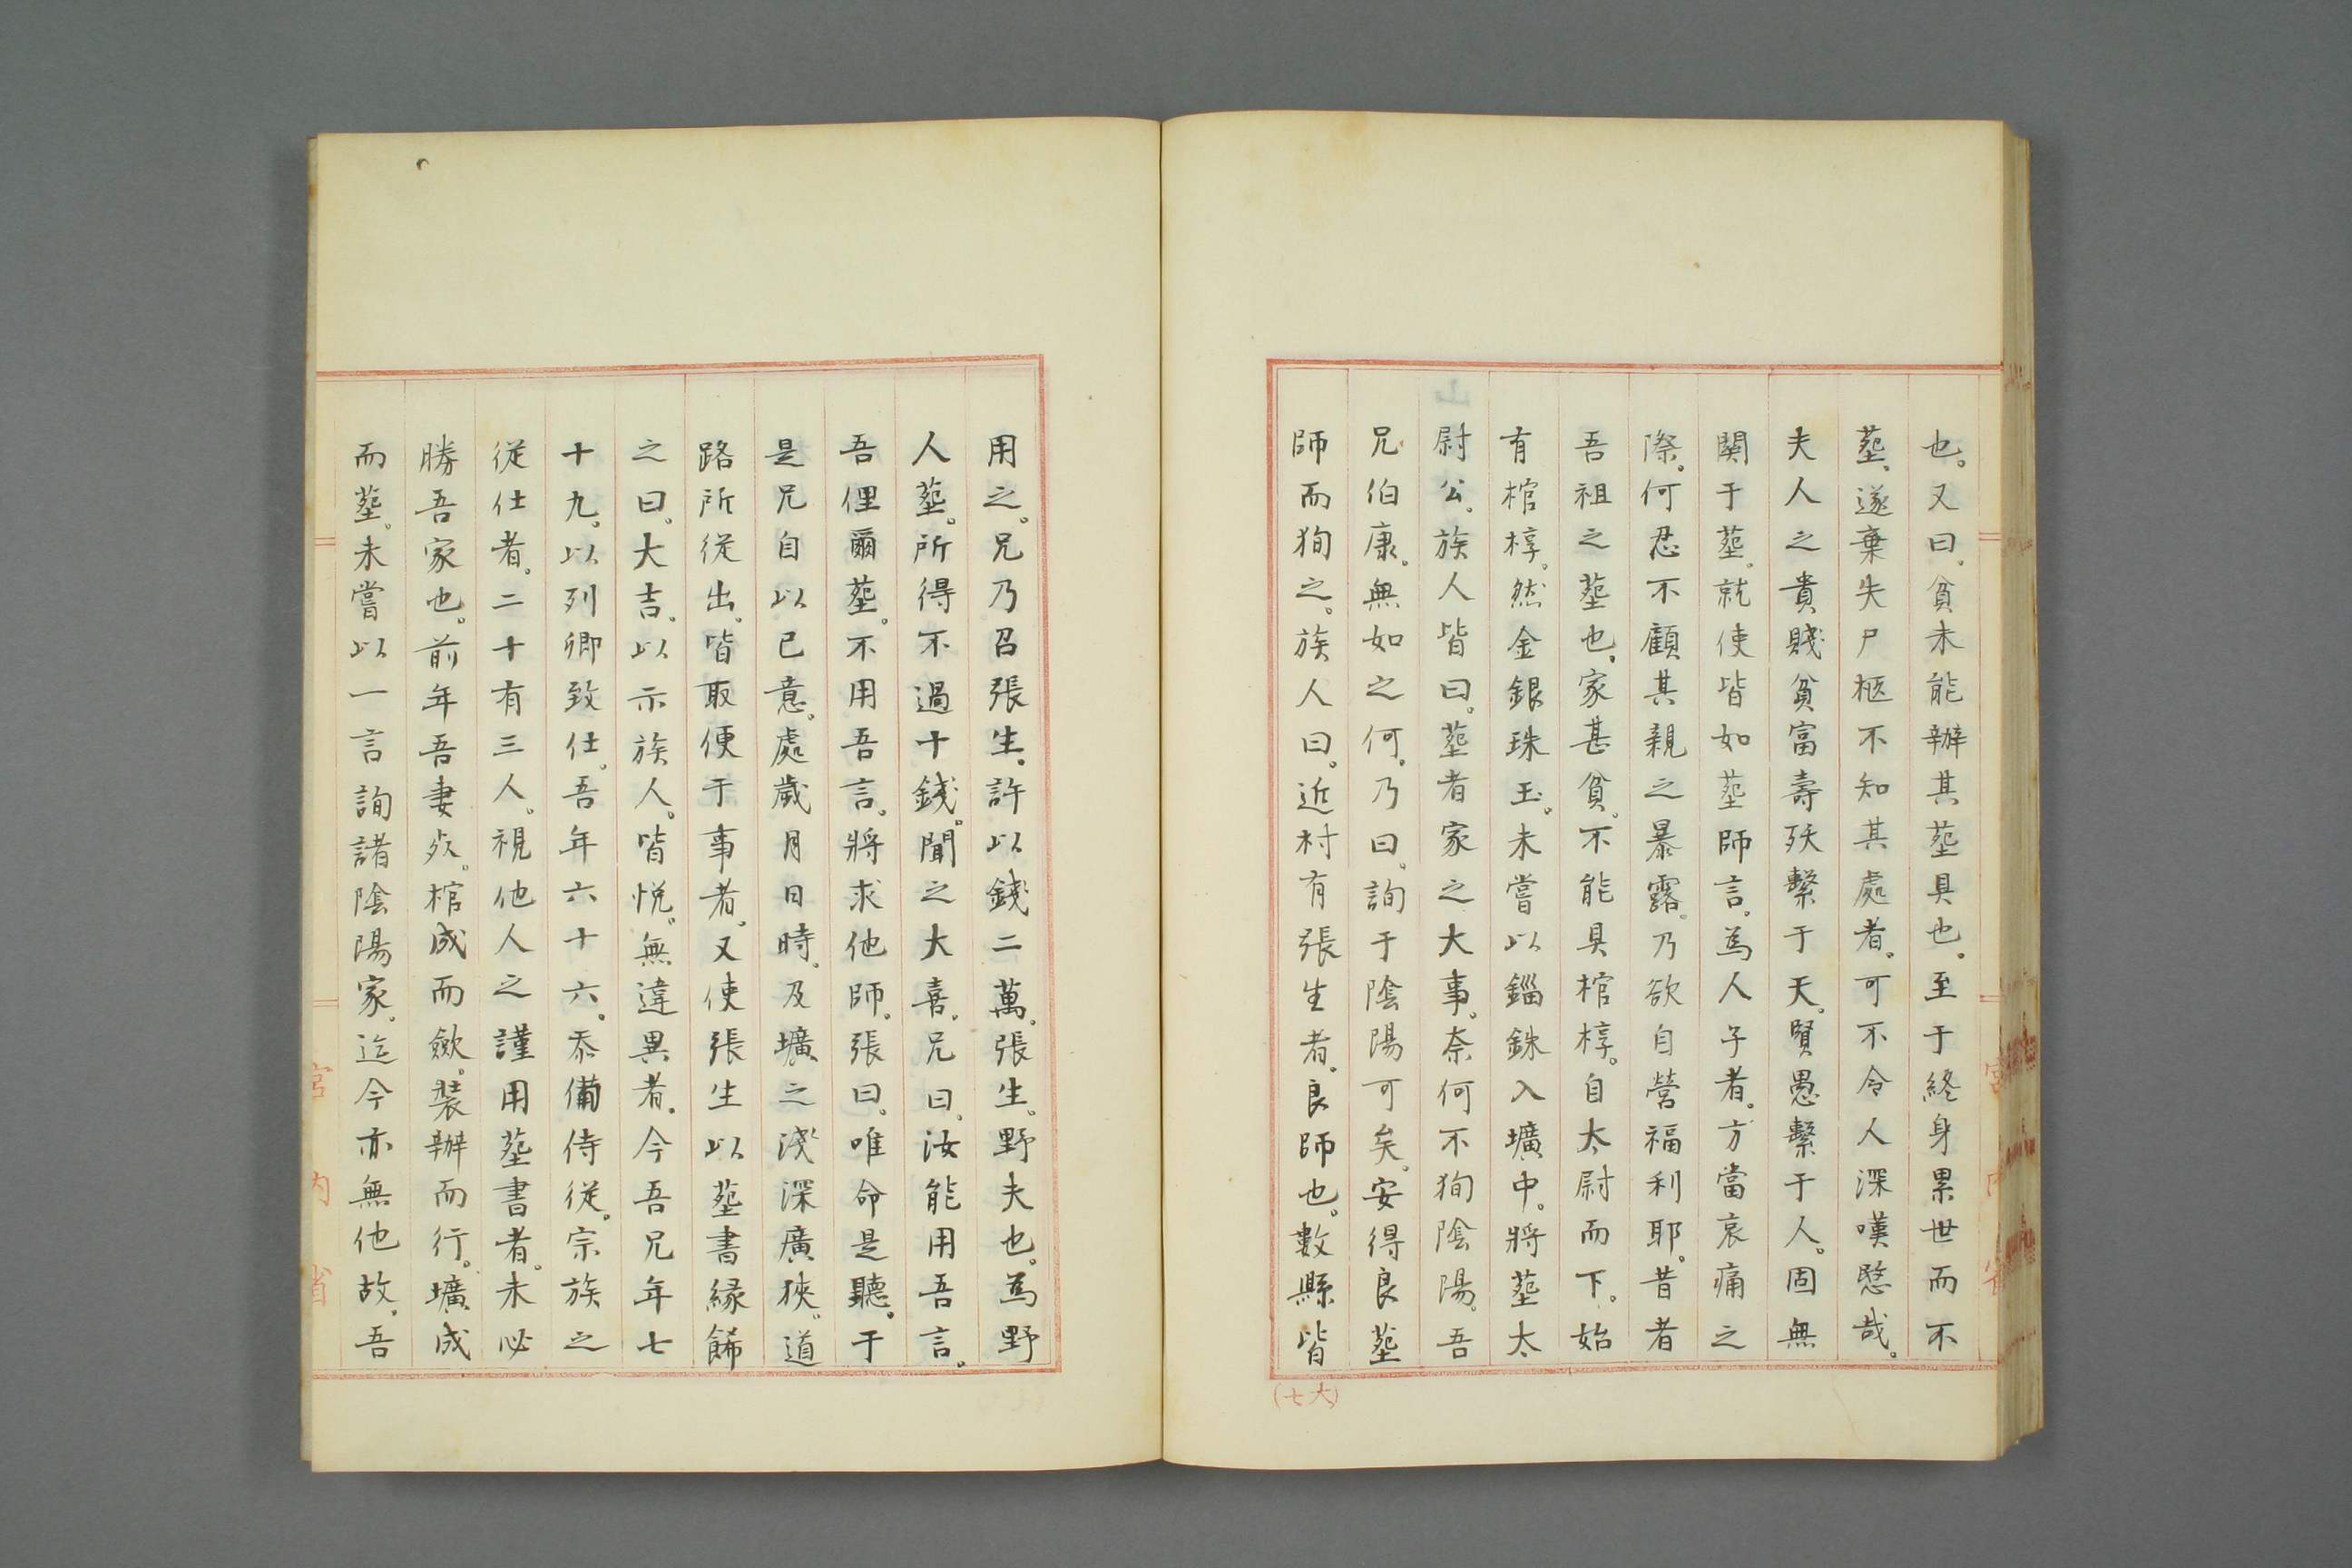 也。又曰。貧未能辦其塟具也。至于終身累世而不
塟、遂棄失尸柩不知其處者。可不令人深嘆愍哉。
夫人之貴賤貧富壽殀繫于天。賢愚繫于人。固無
関于塟。就使皆如塟師言。為人子者。方當哀痛之
際。何忍不顧其親之暴露。乃欲自營福利耶。昔者
吾祖之塟也、家甚貧。不能具棺椁。自太尉而下。始
有棺椁。然金銀珠玉。未嘗以錙銖入壙中。將塟太
尉公。族人皆曰。塟者家之大事。奈何不狥陰陽。吾
兄伯康。無如之何。乃曰。詢于陰陽可矣。安得良塟
師而狥之。族人曰。近村有張生者。良師也。數縣皆
用之。兄乃召張生。許以錢二萬。張生。野夫也。為野
人塟。所得不過十錢。聞之大喜。兄曰。汝能用吾言。
吾俚爾塟。不用吾言。將求他師。張曰。唯命是聽。于
是兄自以已意。處歲月日時。及壙之淺深廣狹。道
路所從出。皆取便于事者。又使張生以塟書緣餙
之曰。大吉。以示族人。皆悅。無違異者。今吾兄年七
十九。以列卿致仕。吾年六十六。忝備侍從。宗族之
從仕者。二十有三人。視他人之謹用塟書者。未必
勝吾家也。前年吾妻歿。棺成而斂。裝辦而行。壙成
而塟。未嘗以一言詢諸陰陽家。迄今亦無他故。吾
宮內省
宮內省
(七大)